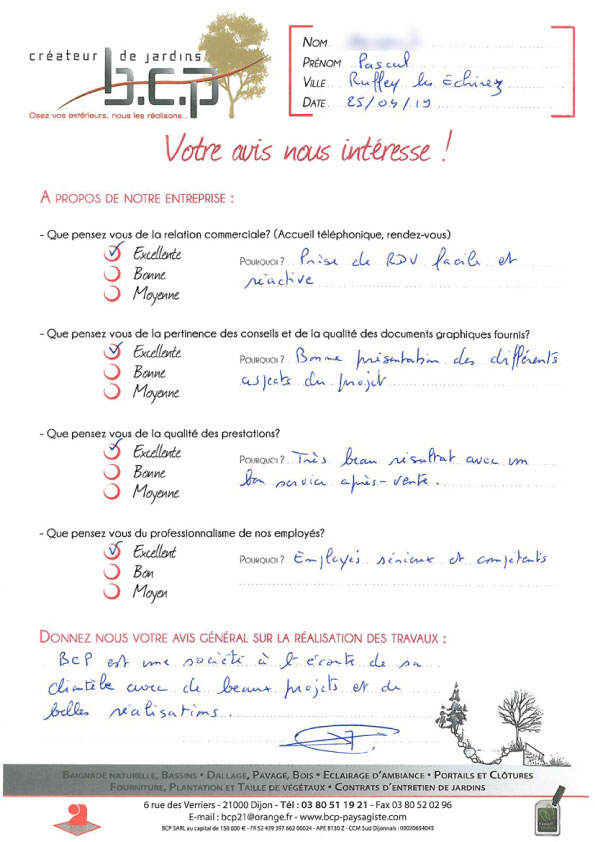 créateur de jardins
b.c.p
Osez vos extérieurs, nous les réalisons...
NOM
PRÉNOM Pascal
VILLE Ruffey les Echirey
DATE 25/04/19
Votre avis nous intéresse !
A PROPOS DE NOTRE ENTREPRISE :
- Que pensez vous de la relation commerciale? (Accueil téléphonique, rendez-vous)
Excellente
Bonne
Moyenne
POURQUOI ? Prise de RDV facile et
réactive
- Que pensez vous de la pertinence des conseils et de la qualité des documents graphiques fournis?
Excellente
Bonne
Moyenne
POURQUOI ? Bonne présentation des différents
aspects du projet
- Que pensez vous de la qualité des prestations?
Excellente
Bonne
Moyenne
POURQUOI ? Très beau résultat avec un
bon service après-vente.
- Que pensez vous du professionnalisme de nos employés?
Excellent
Bon
Moyen
POURQUOI ? Employés sérieux et compétents
DONNEZ NOUS VOTRE AVIS GÉNÉRAL SUR LA RÉALISATION DES TRAVAUX :
BCP est une société à l'écoute de sa
clientèle avec de beaux projets et de
belles réalisations.
BAIGNADE NATURELLE, BASSINS • DALLAGE, PAVAGE, BOIS • ECLAIRAGE D'AMBIANCE • PORTAILS ET CLÔTURES
FOURNITURE, PLANTATION ET TAILLE DE VÉGÉTAUX • CONTRATS D'ENTRETIEN DE JARDINS
6 rue des Verriers - 21000 Dijon - Tél : 03 80 51 19 21 - Fax 03 80 52 02 96
E-mail : bcp21@orange.fr - www.bcp-paysagiste.com
BCP SARL au capital de 150 000 € - FR 52 439 397 662 00024 - APE 8130 Z - CCM Sud Dijonnais : 00020654045